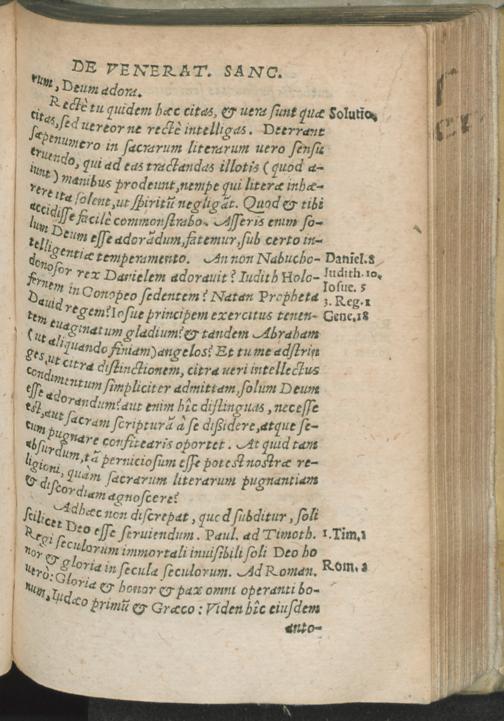 DE VENERAT. SANC.
rum, Deum adora.
Rectè tu quidem hæc citas, & uera sunt quæ Solutio.
citas, sed uereor ne rectè intelligas. Deerrant
sæpenumero in sacrarum literarum uero sensu
eruendo, qui ad eas tractandas illotis (quod a-
iunt) manibus prodeunt, nempe qui literæ inhæ-
rere ita solent, ut spiritũ negligãt. Quod & tibi
accidisse facilè commonstrabo. Asseris enim so-
lum Deum esse adorãdum, fatemur, sub certo in-
telligentiæ temperamento. An non Nabucho- Daniel.8
donosor rex Danielem adorauit? Iudith Holo- Iudith.10.
fernem in Conopeo sedentem? Natan Propheta Iosue. 5
Dauid regem? Iosue principem exercitus tenen- 3. Reg.1
tem euaginatum gladium? & tandem Abraham Gene.18
(ut aliquando finiam) angelos? Et tu me adstrin
ges, ut citra distinctionem, citra ueri intellectus
condimentum simpliciter admittam, solum Deum
esse adorandum? aut enim hîc distinguas, necesse
est, aut sacram scripturã à se dißidere, atque se-
cum pugnare confitearis oportet. At quid tam
absurdum, tã perniciosum esse potest nostræ re-
ligioni, quàm sacrarum literarum pugnantiam
& discordiam agnoscere?
Adhæc non discrepat, quod subditur, soli
scilicet Deo esse seruiendum. Paul. ad Timoth. 1.Tim.1
Regi seculorum immortali inuisibili soli Deo ho
nor & gloria in secula seculorum. Ad Roman. Rom.2
uerò: Gloria & honor & pax omni operanti bo-
num, Iudæo primũ & Græco: Viden hîc eiusdem
anto-